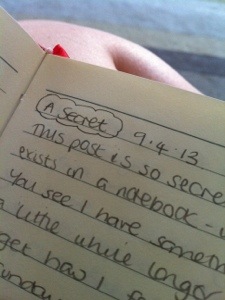 A Secret 9.4.13
This post is so secre
exists in a notebook -
You see I have someth
a little while longer
get how I